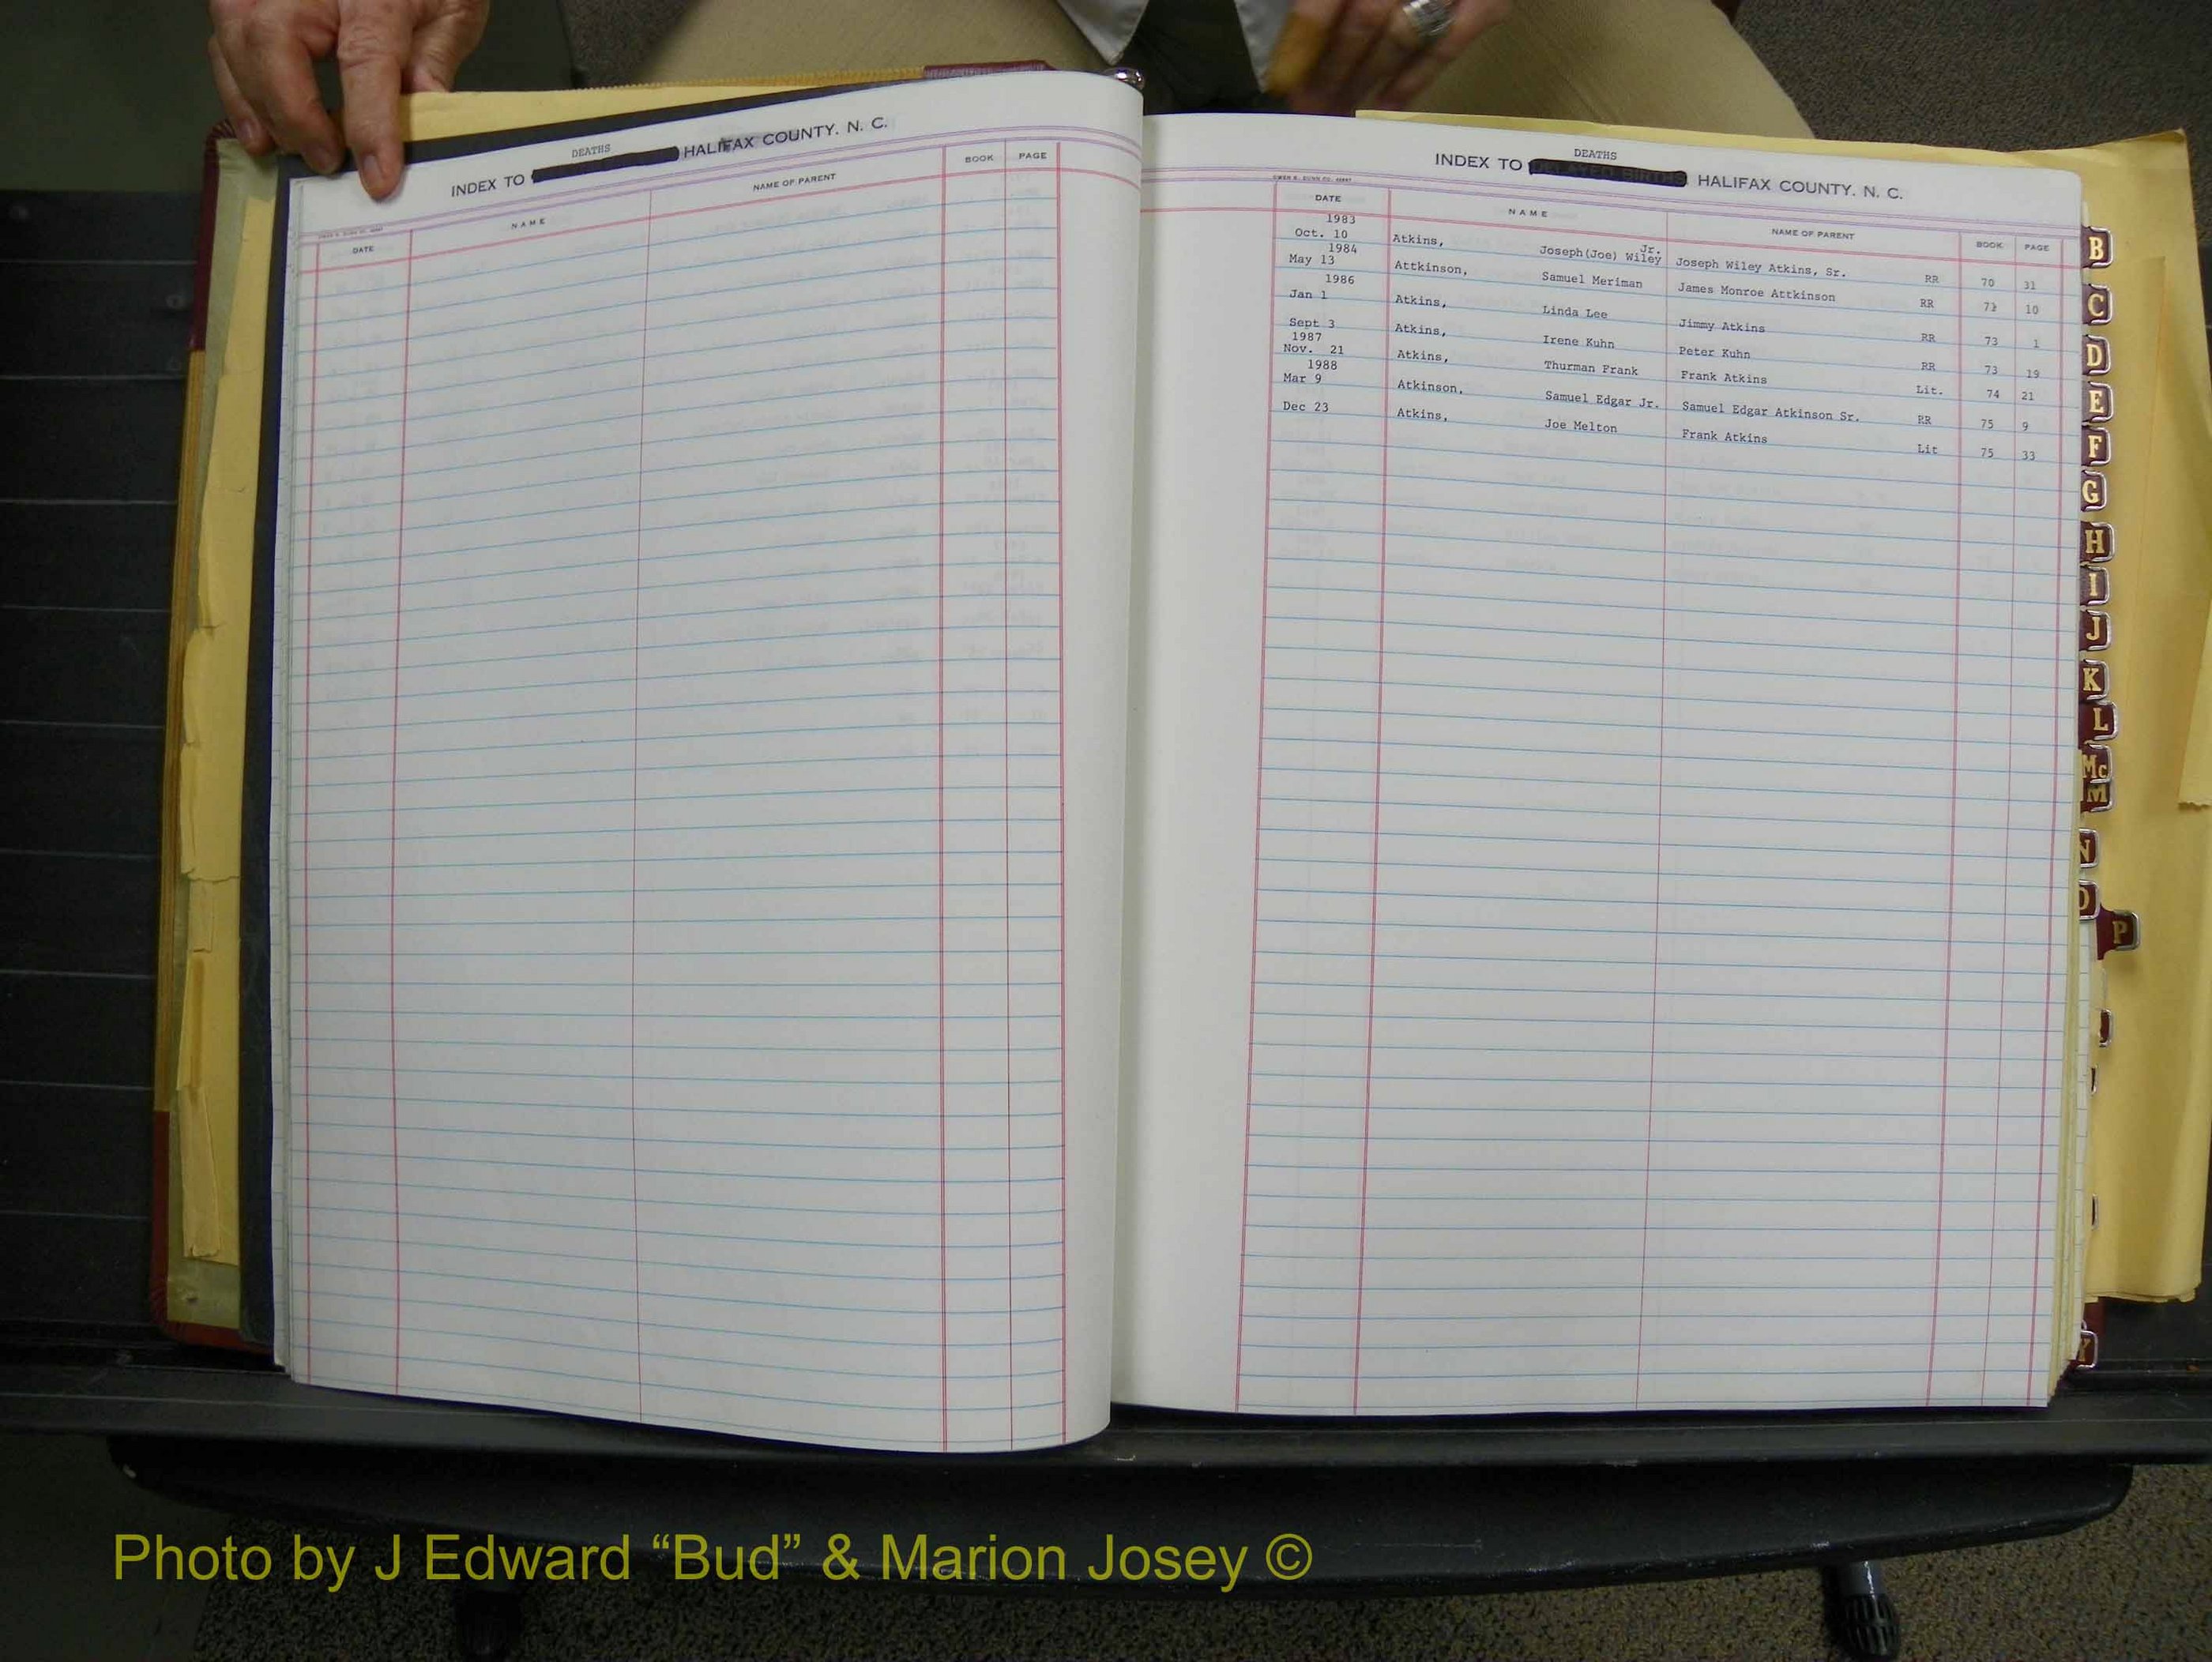 DEATHS
INDEX TO HALIFAX COUNTY. N. C.
DATE NAME NAME OF PARENT BOOK PAGE
DEATHS
INDEX TO DELAYED BIRTHS HALIFAX COUNTY. N. C.
DATE NAME NAME OF PARENT BOOK PAGE
1983
Oct. 10 Atkins, Joseph(Joe) Wiley Jr. Joseph Wiley Atkins, Sr. RR 70 31
1984
May 13 Attkinson, Samuel Meriman James Monroe Attkinson RR 10
1986
Jan 1 Atkins, Linda Lee Jimmy Atkins RR 73 1
Sept 3 Atkins, Irene Kuhn Peter Kuhn RR 73 19
1987
Nov. 21 Atkins, Thurman Frank Frank Atkins Lit. 74 21
1988
Mar 9 Atkinson, Samuel Edgar Jr. Samuel Edgar Atkinson Sr. RR 75 9
Dec 23 Atkins, Joe Melton Frank Atkins Lit 75 33
B
C
D
E
F
G
H
I
J
K
L
Mc
M
N
O
P
Y
Photo by J Edward “Bud” & Marion Josey ©